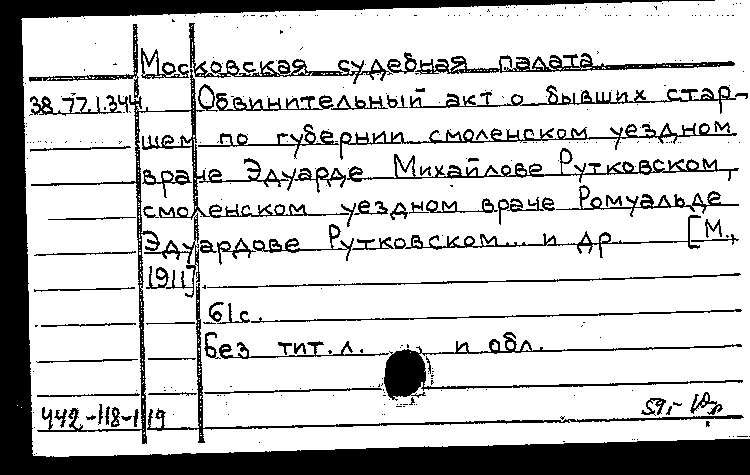 Московская судебная палата.
38.77.1.344. Обвинительный акт о бывших стар-
шем по губернии смоленском уездном
враче Эдуарде Михайлове Рутковском,
смоленском уездном враче Ромуальде
Эдуардове Рутковском... и др. [М.,
1911].
61с.
Без тит.л. и обл.
442-118-119